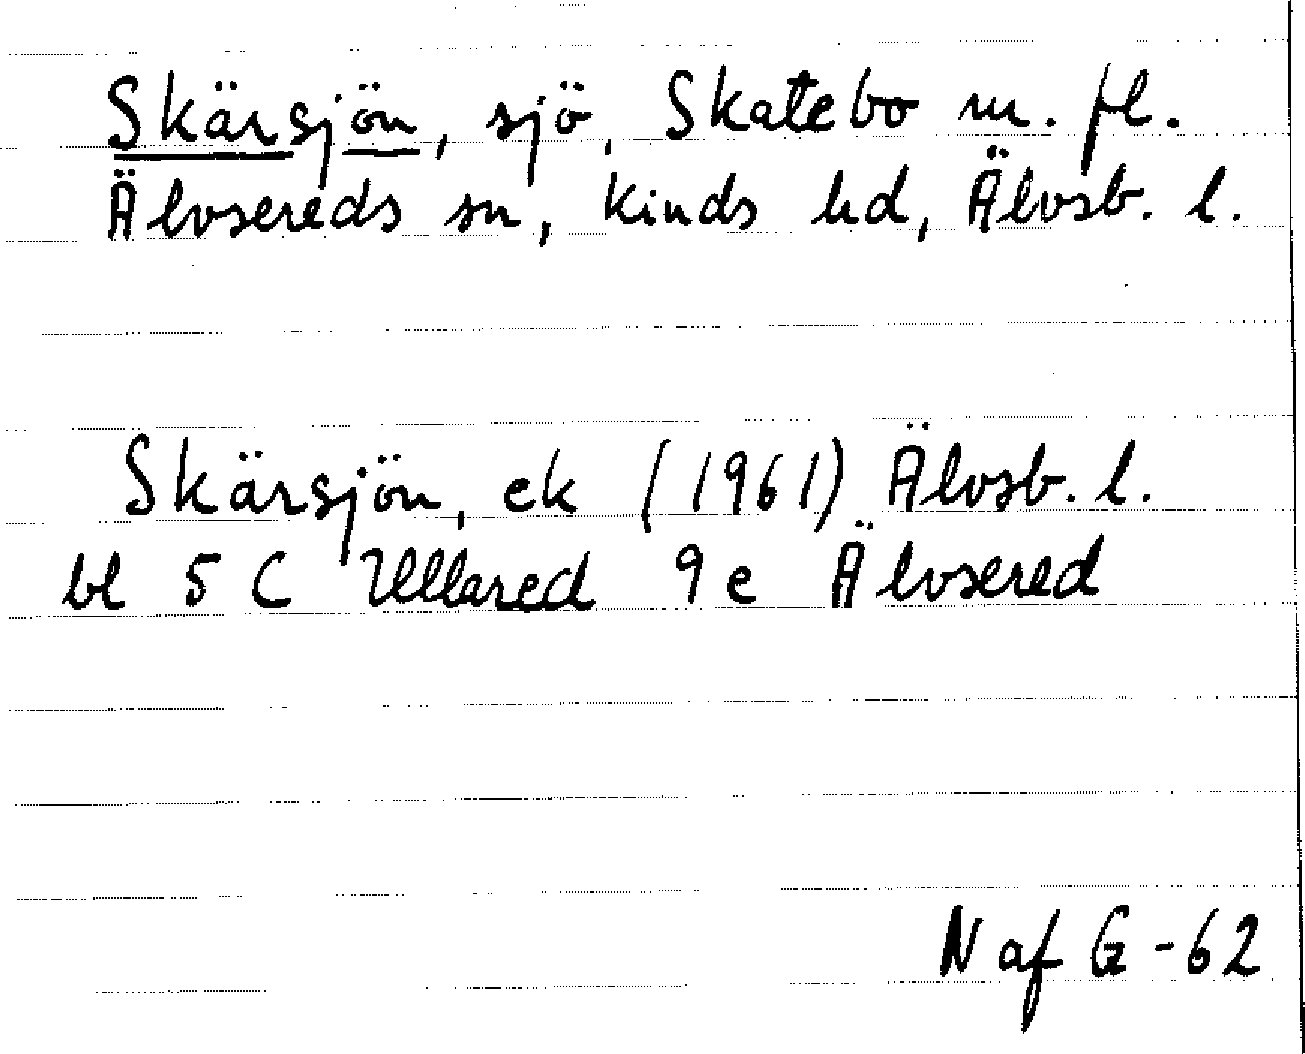 Skärsjön, sjö, Skatebo m. fl.
Älvsereds sn, Kinds hd, Älvsb. l.
Skärsjön, ek (1961) Älvsb. l.
bl 5 C Ullared 9 e Älvsered
N af G - 62